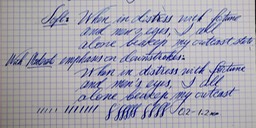 Soft: When in distress with fortune
and men's eyes, I all
alone beweep my outcast state
With Natural emphasis on downstrokes.
When in distress with fortune
and men's eyes, I all
alone beweep my outcast